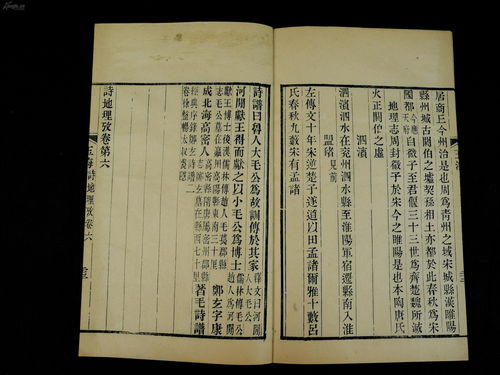 居商丘今州治是也周爲青州之域宋城縣漢睢陽
縣州城古閼伯之墟契孫相土亦都於此春秋爲宋
國都今應天府自微子至君偃三十三世爲齊楚魏所滅
地理志周封微子於宋今之睢陽是也本陶唐氏
火正閼伯之虛
泗濱
泗濱泗水在兗州泗水縣至淮陽軍宿遷縣南入淮
盟豬見前
左傳文十年宋逆楚子遂道以田孟諸爾雅十藪呂
氏春秋九藪宋有孟諸
詩譜曰魯人大毛公爲故訓傳於其家
河間獻王得而獻之以小毛公爲博士
獻王博士後漢儒林傳趙人毛萇
成北海高密人 鄭玄字康
著毛詩譜
詩地理攷卷第六
玉海 詩地理攷卷六